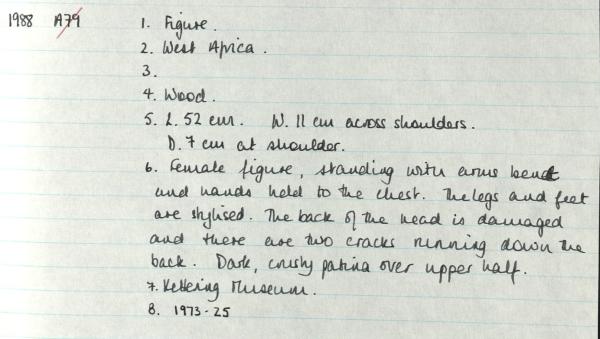 1988 A79 1. Figure.
2. West Africa.
3.
4. Wood.
5. L. 52 cm. W. 11 cm across shoulders.
D. 7 cm at shoulder.
6. Female figure, standing with arms bent
and hands held to the chest. The legs and feet
are stylised. The back of the head is damaged
and there are two cracks running down the
back. Dark, crusty patina over upper half.
7. Kettering Museum.
8. 1973-25